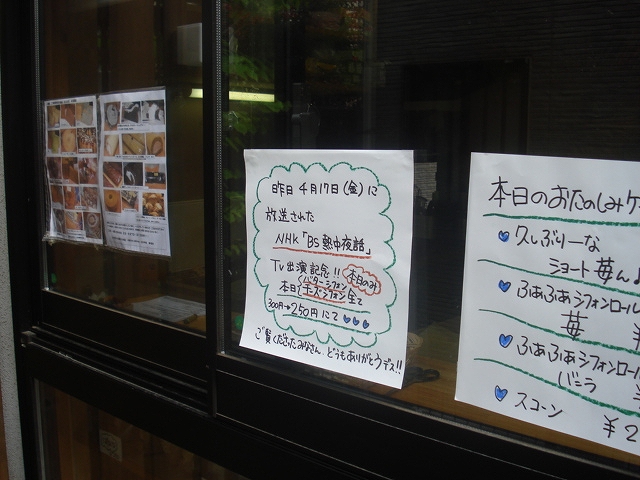 昨日 4月17日(金)に
放送された
NHK「BS熱中夜話」
TV出演記念!! 本日のみ
バターシフォン
本日チーズシフォン全て
300円→250円にて
ご覧くださったみなさん、どうもありがとうデス!!
本日のおたのしみケ
久しぶりーな
ショート苺ん♪
ふあふあシフォンロール
苺
ふあふあシフォンロール
バニラ
スコーン
¥2